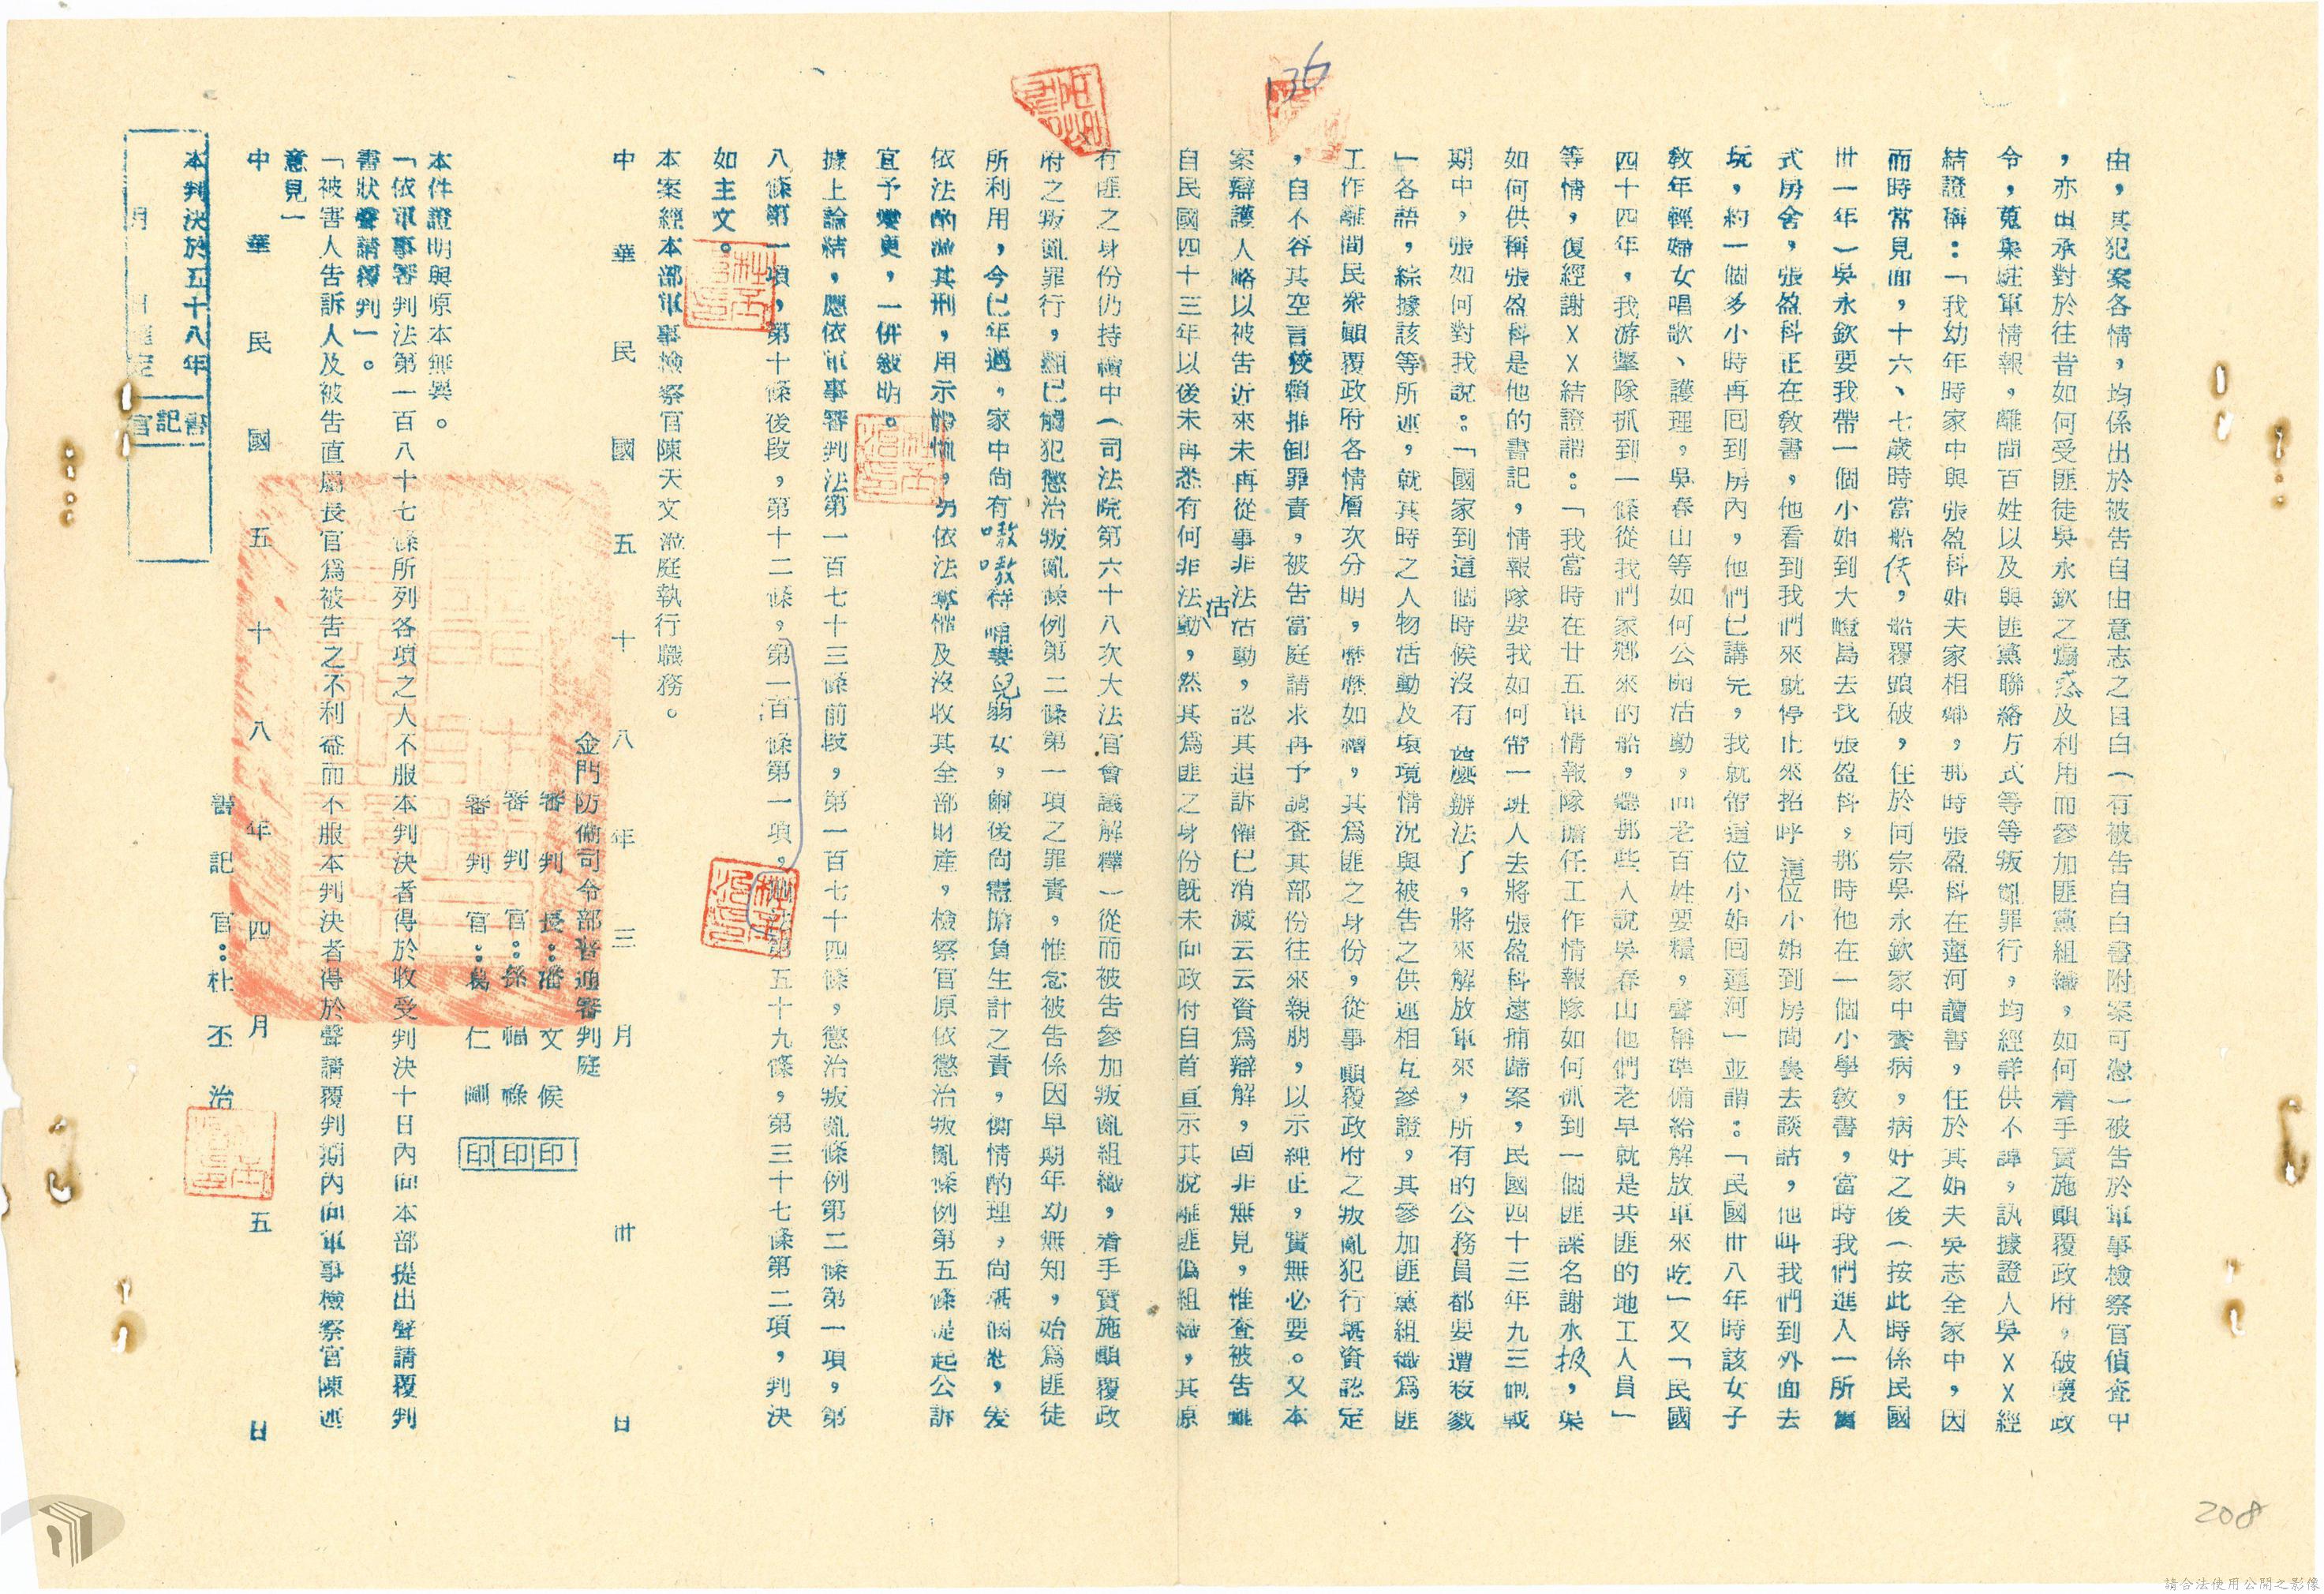 136
由，其犯案各情，均係出於被告自由意志之自白（有被告自白書附案可憑）被告於軍事檢察官偵查中
，亦坦承對於往昔如何受匪徒吳永欽之煽惑及利用而參加匪黨組織，如何着手實施顛覆政府，破壞政
令，蒐集駐軍情報，離間百姓以及與匪黨聯絡方式等等叛亂罪行，均經詳供不諱，訊據證人吳XX經
結證稱：「我幼年時家中與張盈科姊夫家相鄰，那時張盈科在蓮河讀書，住於其姊夫吳志全家中，因
而時常見面，十六、七歲時當船伕，船覆頭破，住於同宗吳永欽家中養病，病好之後（按此時係民國
卅一年）吳永欽要我帶一個小姐到大嶝島去找張盈科，那時他在一個小學敎書，當時我們進入一所舊
式房舍，張盈科正在敎書，他看到我們來就停止來招呼這位小姐到房間裏去談話，他叫我們到外面去
玩，約一個多小時再回到房內，他們已講完，我就帶這位小姐回蓮河」並謂：「民國卅八年時該女子
敎年輕婦女唱歌、護理，吳春山等如何公開活動，向老百姓要糧，聲稱準備給解放軍來吃」又「民國
四十四年，我游擊隊抓到一條從我們家鄉來的船，聽那些人說吳春山他們老早就是共匪的地工人員」
等情，復經謝XX結證謂：「我當時在廿五軍情報隊擔任工作情報隊如何抓到一個匪諜名謝水扱，吳
如何供稱張盈科是他的書記，情報隊要我如何帶一班人去將張盈科逮捕歸案，民國四十三年九三砲戰
期中，張如何對我說：「國家到這個時候沒有甚麼辦法了，將來解放軍來，所有的公務員都要遭殺戮
」各語，綜據該等所述，就其時之人物活動及環境情況與被告之供述相互參證，其參加匪黨組織爲匪
工作離間民衆顛覆政府各情層次分明，歷歷如繪，其爲匪之身份，從事顛覆政府之叛亂犯行堪資認定
，自不容其空言狡賴推卸罪責，被告當庭請求再予調查其部份往來親朋，以示純正，實無必要。又本
案辯護人略以被告近來未再從事非法活動，認其追訴權已消滅云云資爲辯解，固非無見，惟查被告雖
自民國四十三年以後未再悉有何非法活動，然其爲匪之身份旣未向政府自首宣示其脫離匪僞組織，其原
有匪之身份仍持續中（司法院第六十八次大法官會議解釋）從而被告參加叛亂組織，着手實施顛覆政
府之叛亂罪行，顯已觸犯懲治叛亂條例第二條第一項之罪責，惟念被告係因早期年幼無知，始爲匪徒
所利用，今已年邁，家中尙有嗷嗷待哺妻兒弱女，嗣後尙需擔負生計之責，衡情酌理，尙堪憫恕，爰
依法酌減其刑，用示懲惻，另依法褫權及沒收其全部財產，檢察官原依懲治叛亂條例第五條提起公訴
宜予變更，一併敍明。
據上論結，應依軍事審判法第一百七十三條前段，第一百七十四條，懲治叛亂條例第二條第一項，第
八條第一項，第十條後段，第十二條，第一百條第一項，刑法第五十九條，第三十七條第二項，判決
如主文。
本案經本部軍事檢察官陳天文蒞庭執行職務。
中華民國五十八年三月卅日
金門防衞司令部普通審判庭
審判長：潘文候 印
審判官：孫福祿 印
審判官：葛仁剛 印
本件證明與原本無異。
「依軍事審判法第一百八十七條所列各項之人不服本判決者得於收受判決十日內向本部提出聲請覆判
書狀聲請覆判」。
「被害人告訴人及被告直屬長官爲被告之不利益而不服本判決者得於聲請覆判期內向軍事檢察官陳述
意見」
中華民國五十八年四月五日
書記官：杜丕治
本判決於五十八年
月　日確定
書記官
208
請合法使用公開之影像